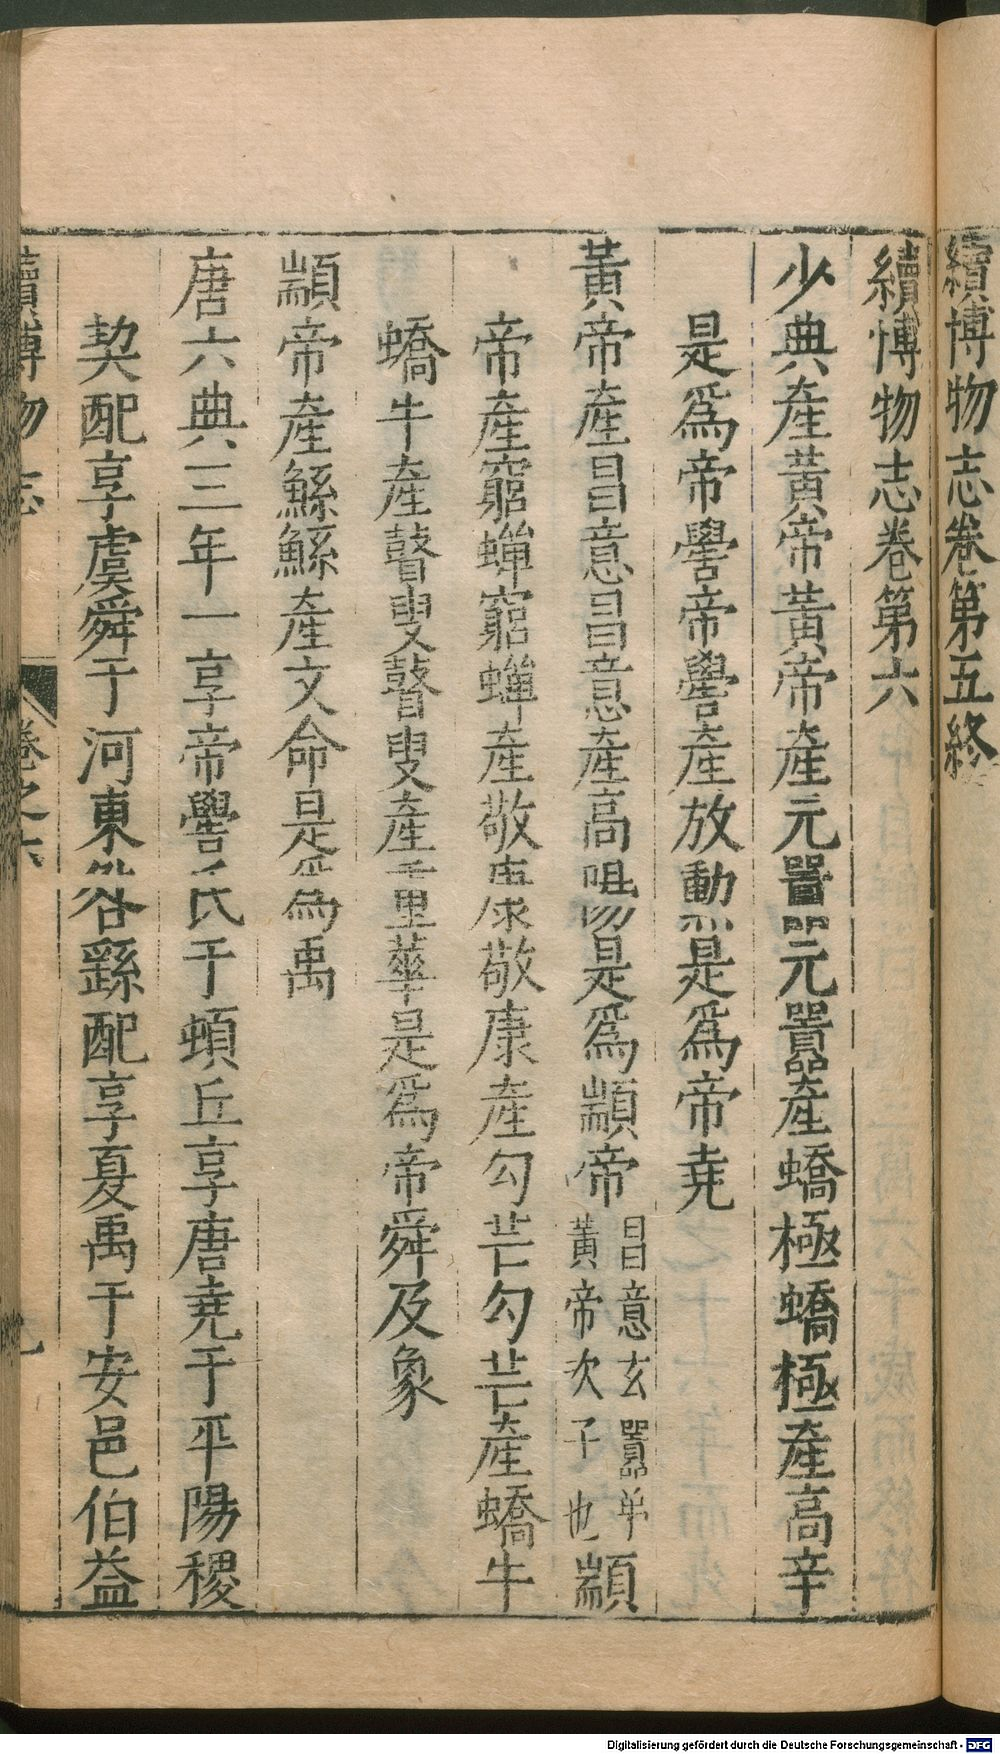 續博物志卷第五終
續博物志卷第六
少典產黃帝黃帝產元囂元囂產蟜極蟜極產高辛
是爲帝嚳帝嚳產放勳是爲帝堯
黃帝產昌意昌意產高陽是爲顓帝昌意玄囂弟黃帝次子也顓
帝產窮蟬窮蟬產敬康敬康產勾芒勾芒產蟜牛
蟜牛產瞽叟瞽叟產重華是爲帝舜及象
顓帝產鯀鯀產文命是爲禹
唐六典三年一享帝嚳氏于頓丘享唐堯于平陽稷
契配享虞舜于河東咎繇配享夏禹于安邑伯益
續博物志 卷之六
Digitalisierung gefördert durch die Deutsche Forschungsgemeinschaft - DFG